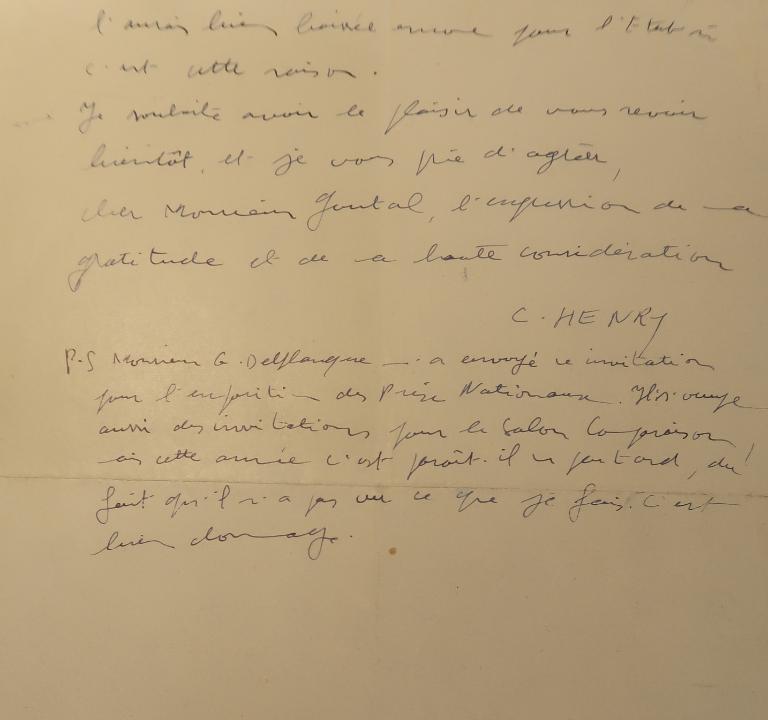 l'aurais bien laissée encore pour l'Etat si
c'est cette raison.
Je souhaite avoir le plaisir de vous revoir
bientôt, et je vous prie d'agréer,
cher Monsieur Goutal, l'expression de ma
gratitude et de ma haute considération
C. HENRY
P-S Monsieur G. Delflanque m'a envoyé une invitation
pour l'exposition des Prix Nationaux. Il s'occupe
aussi des invitations pour le Salon Comparaison,
mais cette année c'est paraît-il un peu tard, du
fait qu'il n'a pas vu ce que je fais. C'est
bien dommage.